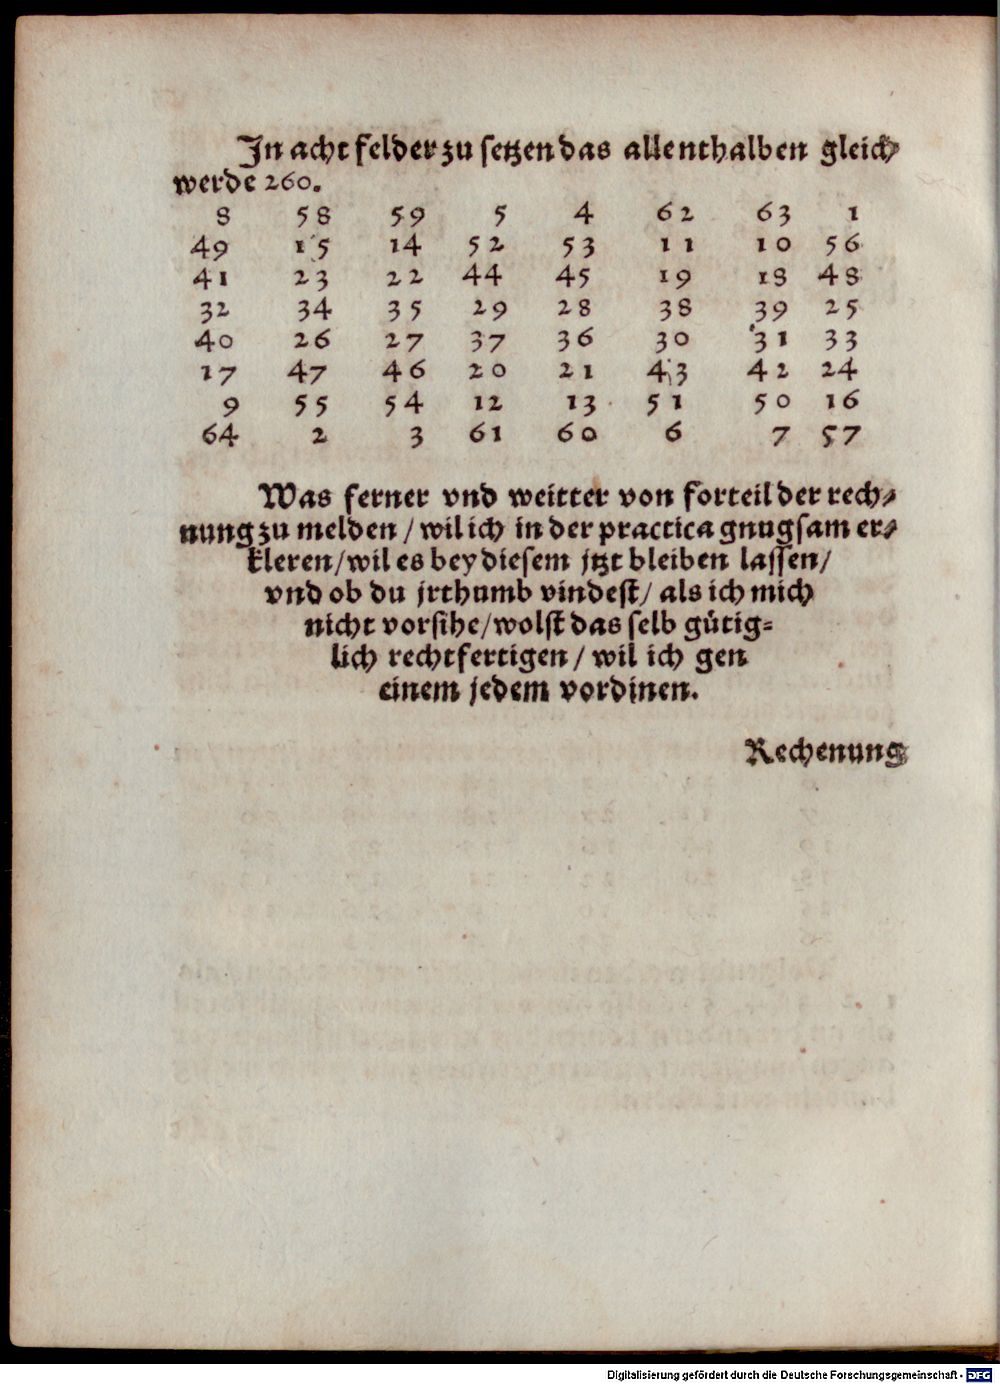 Jn acht felder zu setzen das allenthalben gleich
werde 260.
8 58 59 5 4 62 63 1
49 15 14 52 53 11 10 56
41 23 22 44 45 19 18 48
32 34 35 29 28 38 39 25
40 26 27 37 36 30 31 33
17 47 46 20 21 43 42 24
9 55 54 12 13 51 50 16
64 2 3 61 60 6 7 57
Was ferner vnd weitter von forteil der rech-
nung zu melden / wil ich in der practica gnugsam er-
kleren/wil es bey diesem jtzt bleiben lassen/
vnd ob du jrthumb vindest/ als ich mich
nicht vorsihe/wolst das selb gütig-
lich rechtfertigen / wil ich gen
einem jedem vordinen.
Rechenung
Digitalisierung gefördert durch die Deutsche Forschungsgemeinschaft - DFG